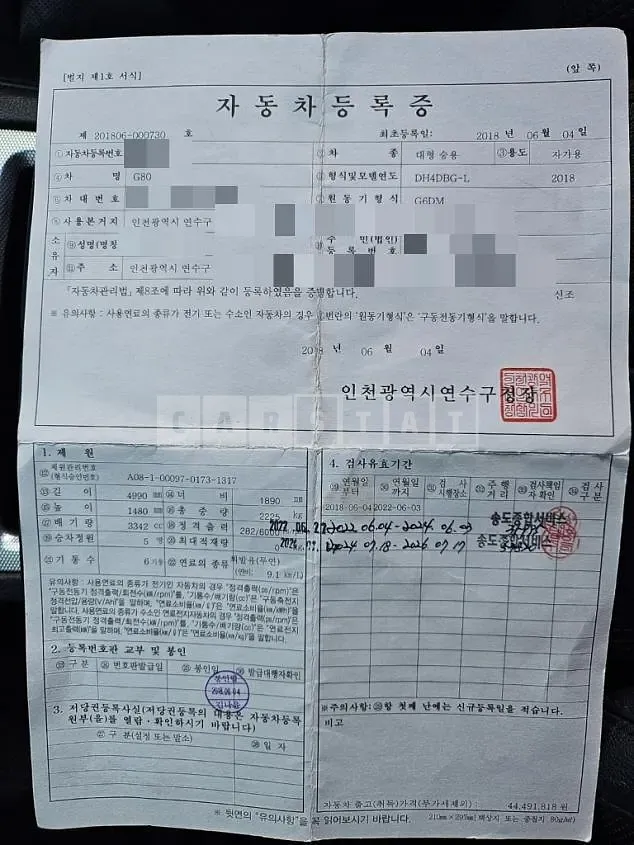 [별지 제1호 서식]
(앞 쪽)
자동차등록증
제 201806-000730 호
최초등록일: 2018 년 06 월 04 일
①자동차등록번호
②차 종 대형 승용 ③용도 자가용
④차 명 G80
⑤형식및모델연도 DH4DBG-L 2018
⑥차 대 번 호
⑦원 동 기 형 식 G6DM
⑧사용본거지 인천광역시 연수구
소유자
⑨성명(명칭)
⑩주 민(법인) 등 록 번 호
⑪주 소 인천광역시 연수구
「자동차관리법」 제8조에 따라 위와 같이 등록하였음을 증명합니다.
신조
※ 유의사항 : 사용연료의 종류가 전기 또는 수소인 자동차의 경우 ⑦번란의 '원동기형식'은 '구동전동기형식'을 말합니다.
2018 년 06 월 04 일
인천광역시연수구청장
CARSTAT
1. 제 원
⑫제원관리번호 (형식승인번호) A08-1-00097-0173-1317
⑬길 이 4990 mm ⑭너 비 1890 mm
⑮높 이 1480 mm ⑯총 중 량 2225 kg
⑰배 기 량 3342 cc ⑱정격출력 282/6000
⑲승차정원 5 명 ⑳최대적재량
㉑기 통 수 6 기통 ㉒연료의 종류 휘발유(무연) (연비: 9.1 km/L)
유의사항 : 사용연료의 종류가 전기인 자동차의 경우 "정격출력(ps/rpm)"은
"구동전동기 정격출력/회전수(kW/rpm)"를, "기통수/배기량(cc)"은 "구동축전지
정격전압/용량(V/Ah)"을 말하며, "연료소비율(km/ℓ)"은 "연료소비율(km/kWh)"를
말합니다. 사용연료의 종류가 수소인 연료전지자동차의 경우 "정격출력(ps/rpm)"은
"구동전동기 정격출력/회전수(kW/rpm)"를, "기통수/배기량(cc)"은 "연료전지
최고출력(kW)"을 말하며, "연료소비율(km/ℓ)"은 "연료소비율(km/kg)"을 말합니다.
2. 등록번호판 교부 및 봉인
㉓구 분 ㉔번호판발급일 ㉕봉인일 ㉖발급대행자확인
2018.06.04
3. 저당권등록사실(저당권등록의 내용은 자동차등록
원부(을)를 열람ㆍ확인하시기 바랍니다)
㉗구 분(설정 또는 말소) ㉘일 자
4. 검사유효기간
㉙연월일 부터 ㉚연월일 까지 ㉛검 사 시행장소 ㉜주행 거리 ㉝검사책임 자 확인 ㉞검사 구분
2018-06-04 2022-06-03
2022.06.27 2022.06.04-2024.06.03 송도종합서비스
2024.07.18-2026.07.17 송도종합서비스
※주의사항:㉙항 첫째 난에는 신규등록일을 적습니다.
비고
자동차 출고(취득)가격(부가세제외) : 44,491,818 원
※ 뒷면의 "유의사항"을 꼭 읽어보시기 바랍니다.
210mm×297mm[백상지 또는 중질지 80g/㎡]